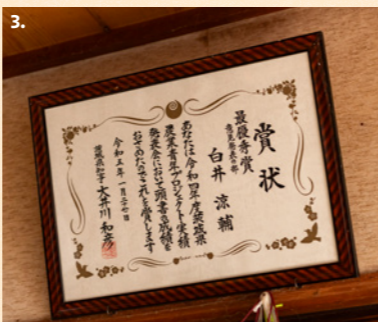 3.
賞状
最優秀賞
意見発表の部
白井 涼輔
あなたは令和四年度茨城県
農業青年プロジェクト実績
発表会において頭書の成績を
おさめたのでこれを賞します
令和五年一月二十七日
茨城県知事 大井川 和彦